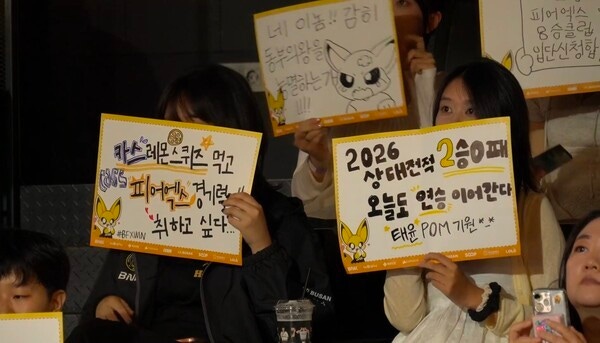 네 이놈!! 감히
동부의왕을
능멸하는가
!!!!
피어엑스
8승클럽
입단신청함
카스 레몬스퀴즈 먹고
피어엑스 경기력!!
취하고 싶다...
#BFXWIN
2026
상대전적 2승0패
오늘도 연승 이어간다
태윤 POM 기원 *_*
BNK
BUSAN